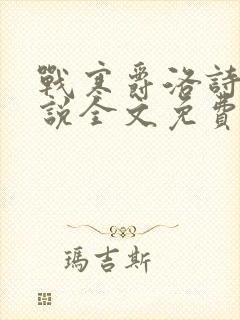 戰寒爵洛詩
說全文免費
瑪吉斯